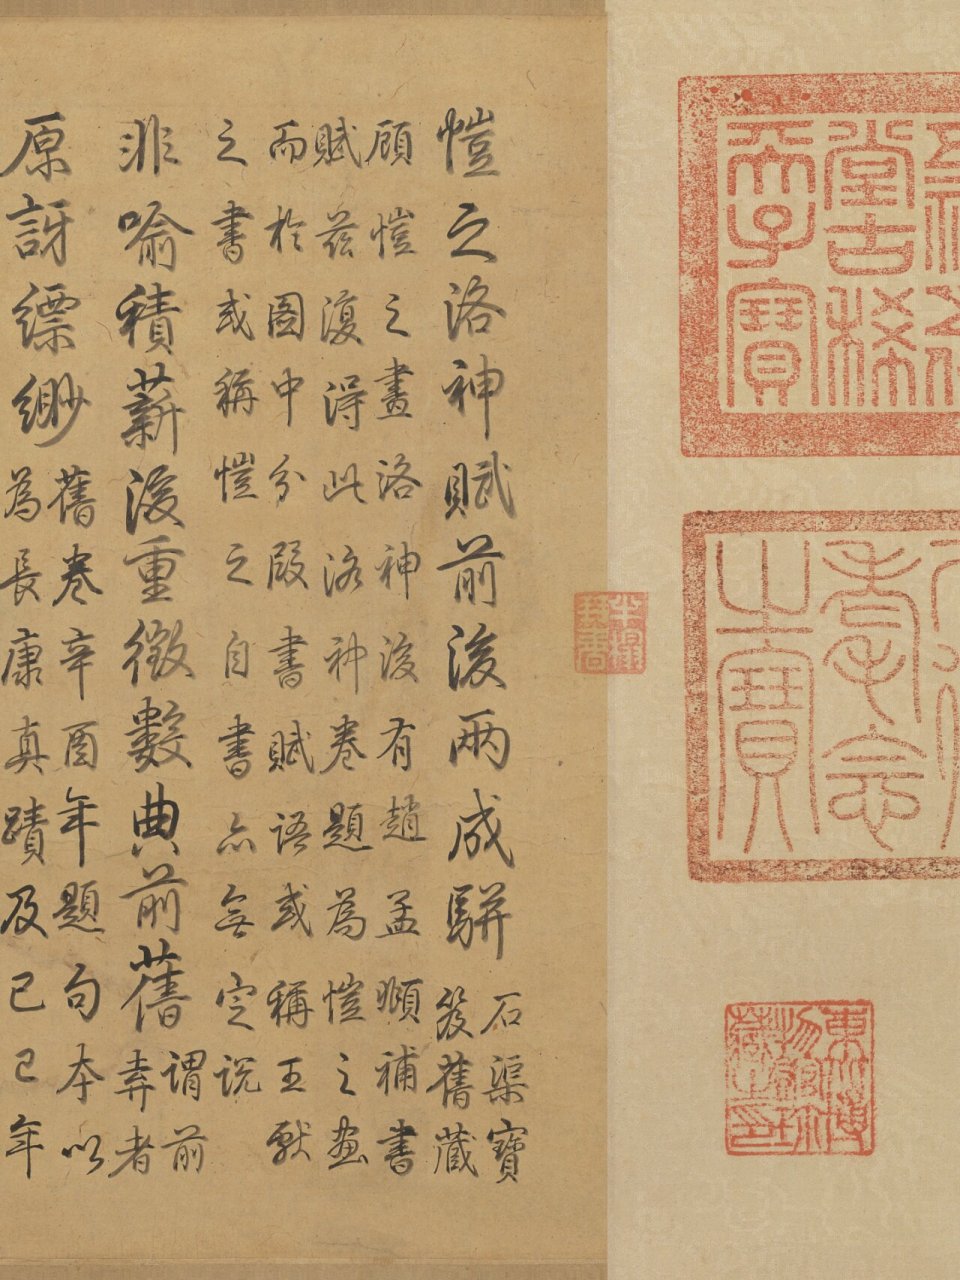 堂古稀
天子寶
耄念
之寶
東北博
物館珍
藏之印
愷之洛神賦前後兩成駢
石渠寶
笈舊藏
顧愷之畫洛神後有趙孟頫補書
賦茲復得此洛神卷題為愷之畫
而於圖中分段書賦語或稱王獻
之書或稱愷之自書亦無定說
非喻積薪後重徵數典前舊
謂前
弆者
原訝縹緲
舊卷辛酉年題句本以
為長康真蹟及己巳年